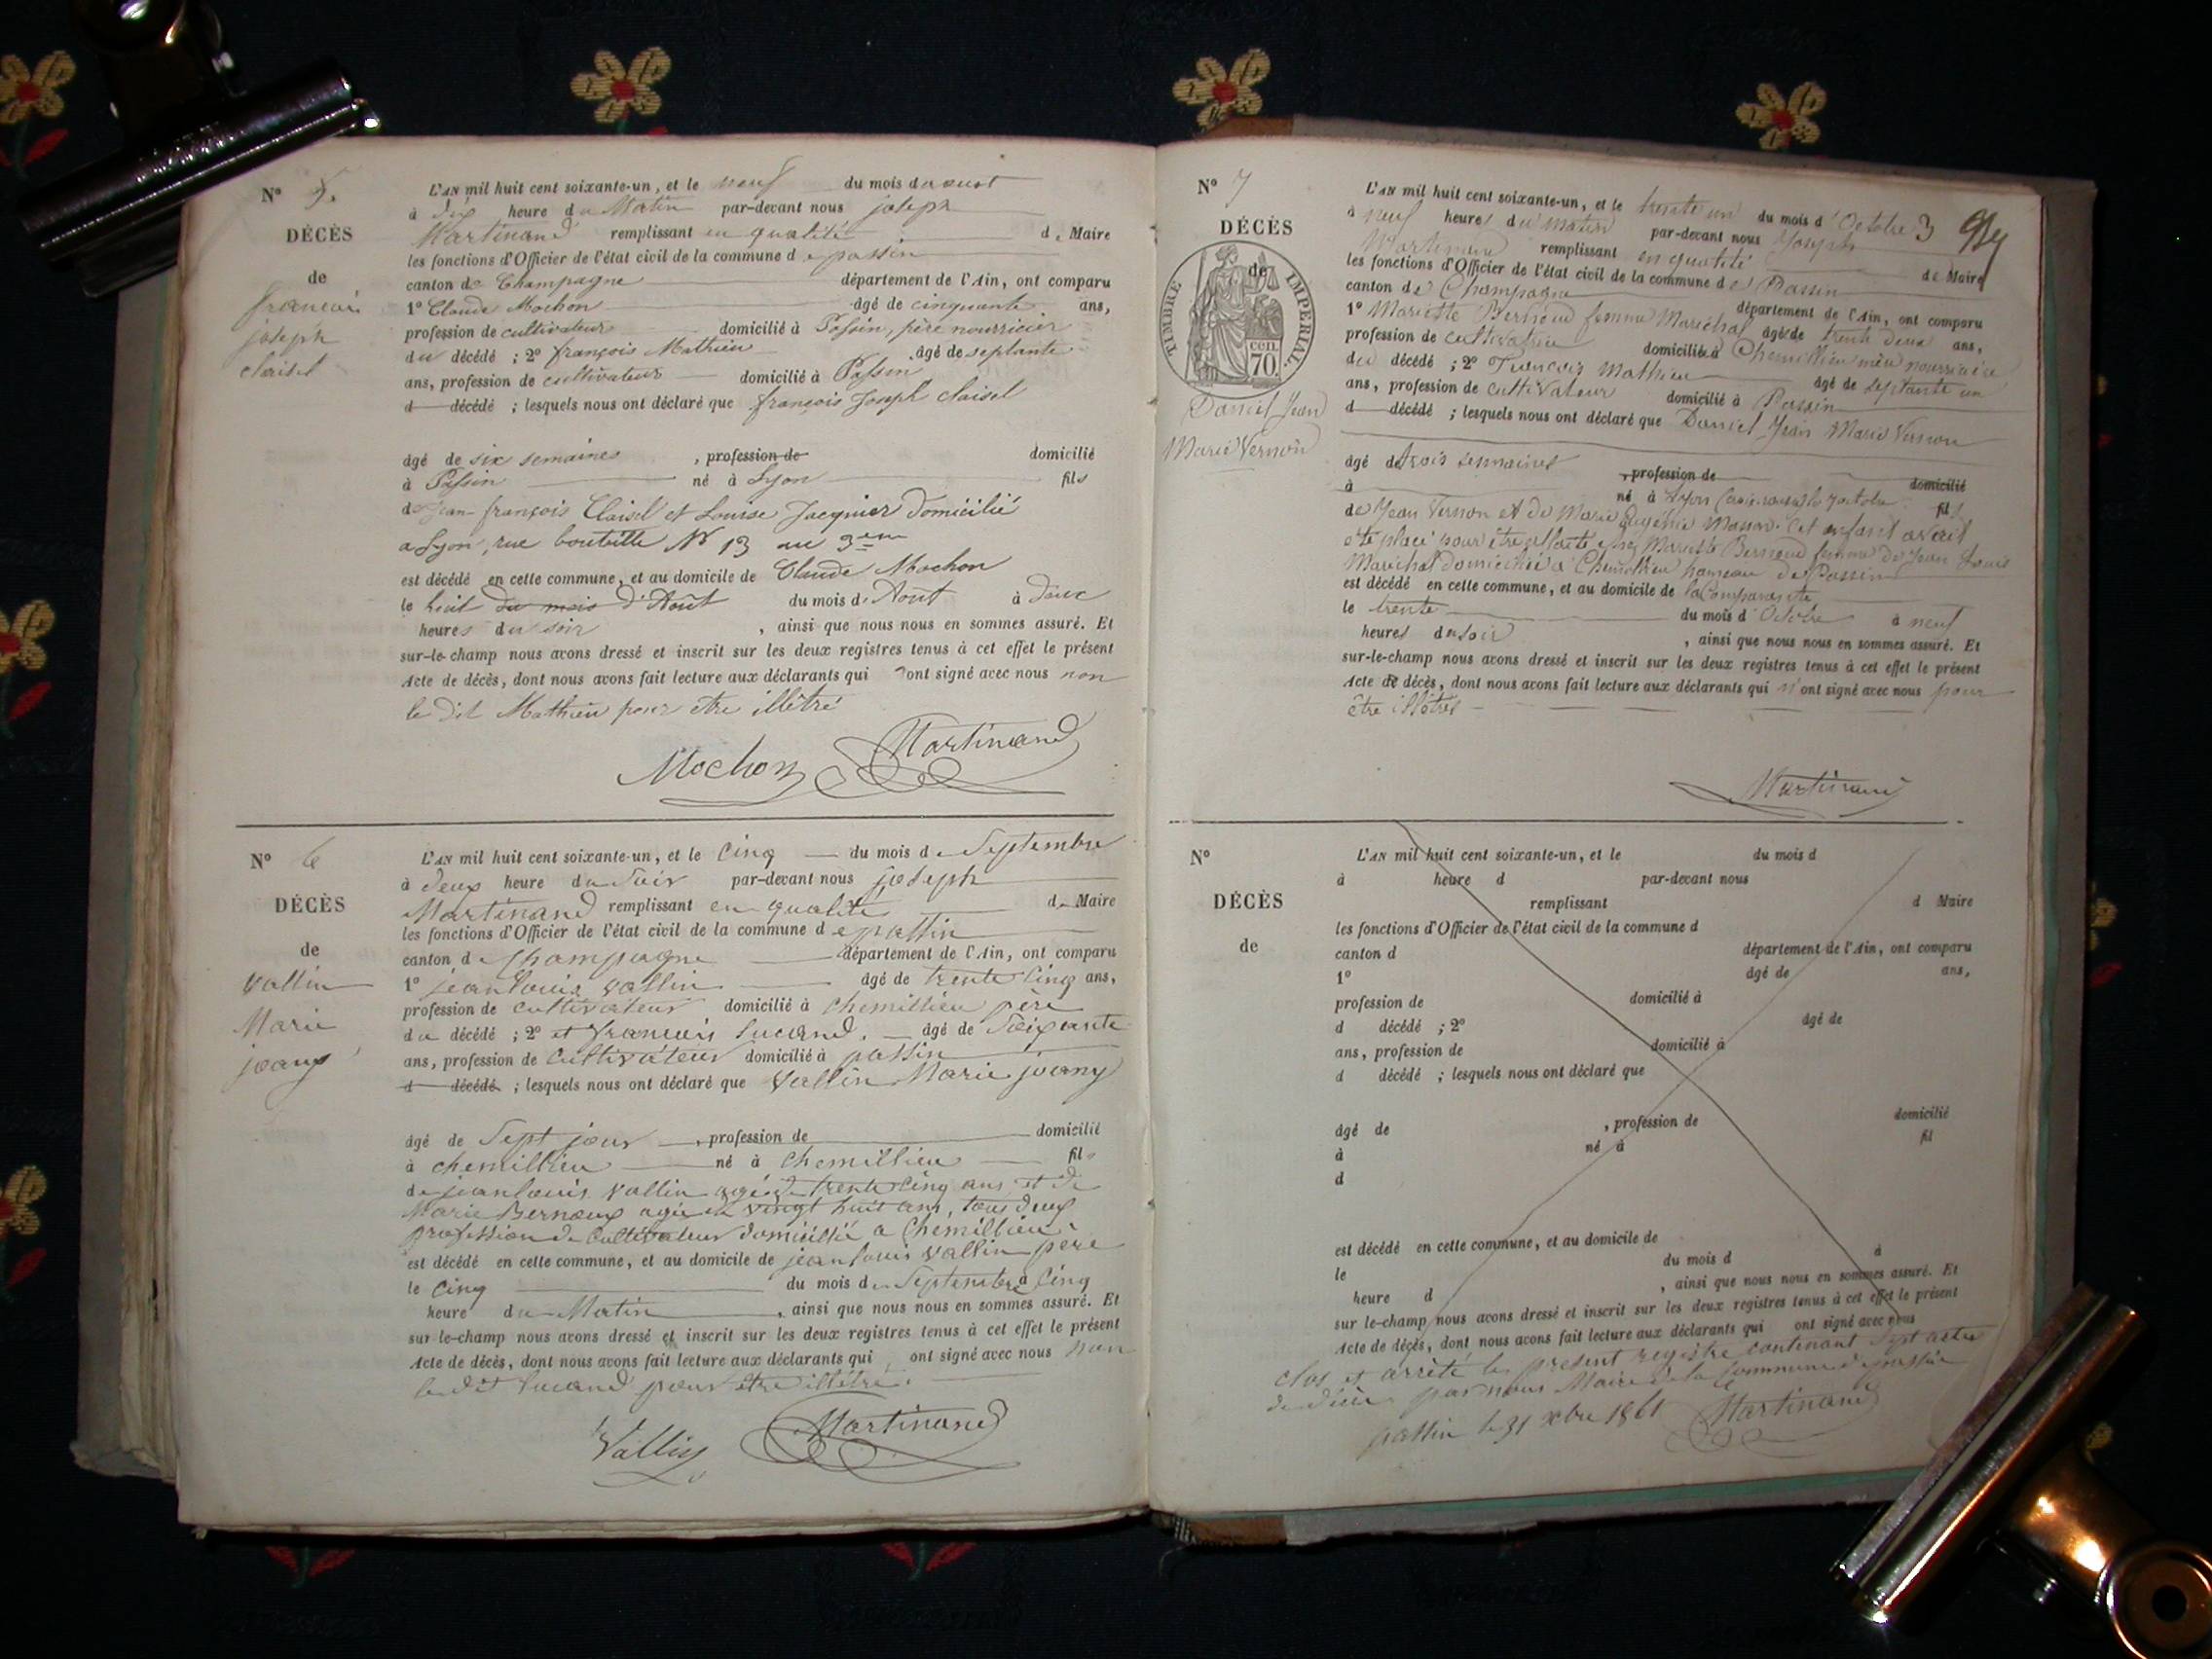 N° 5.
DÉCÈS
de
francois
joseph
claisel
L'AN mil huit cent soixante-un, et le neuf du mois d'aoust
à dix heure du Matin par-devant nous joseph
Martinand remplissant en qualité de Maire
les fonctions d'Officier de l'état civil de la commune de passin
canton de Champagne département de l'Ain, ont comparu
1° Claude Mochon âgé de cinquante ans,
profession de cultivateur domicilié à Passin, père nourricier
du décédé ; 2° françois Mathieu âgé de septante
ans, profession de cultivateur domicilié à Passin
d décédé ; lesquels nous ont déclaré que françois Joseph claisel
âgé de six semaines , profession de domicilié
à Passin né à Lyon fils
de Jean-françois Claisel et Louise Jacquier domicilié
a Lyon, rue bouteille N° 13 au 3em
est décédé en cette commune, et au domicile de Claude Mochon
le huit du mois d'Août du mois d'Aout à douc
heures du soir , ainsi que nous nous en sommes assuré. Et
sur-le-champ nous avons dressé et inscrit sur les deux registres tenus à cet effet le présent
Acte de décès, dont nous avons fait lecture aux déclarants qui ont signé avec nous non
le dit Mathieu pour être illétré
Mochon Martinand
N° 6
DÉCÈS
de
vallin
Marie
joany
L'AN mil huit cent soixante-un, et le cinq du mois de Septembre
à deux heure du Soir par-devant nous joseph
Martinand remplissant en qualité de Maire
les fonctions d'Officier de l'état civil de la commune de passin
canton de Champagne département de l'Ain, ont comparu
1° jean louis vallin âgé de trente cinq ans,
profession de cultivateur domicilié à chemillieu père
du décédé ; 2° et francois Lucand. âgé de Soixante
ans, profession de cultivateur domicilié à passin
d décédé ; lesquels nous ont déclaré que vallin Marie joany
âgé de Sept jour , profession de domicilié
à chemillieu né à chemillieu fils
de jean louis vallin agé de trente cinq ans et de
Marie Bernoux agée de vingt huit ans, tous deux
profession de Cultivateur domicilié a Chemillieu
est décédé en cette commune, et au domicile de jean louis vallin père
le cinq du mois de Septembre à cinq
heure du Matin , ainsi que nous nous en sommes assuré. Et
sur-le-champ nous avons dressé et inscrit sur les deux registres tenus à cet effet le présent
Acte de décès, dont nous avons fait lecture aux déclarants qui ont signé avec nous non
le dit Lucand pour être illétré.
Vallin Martinand
N° 7
DÉCÈS
de
TIMBRE IMPERIAL
cen. 70.
Daniel Jean
Marie Vernon
L'AN mil huit cent soixante-un, et le trente un du mois d'Octobre 3
à neuf heures du matin par-devant nous Joseph
Martinand remplissant en qualité de Maire
les fonctions d'Officier de l'état civil de la commune de Passin
canton de Champagne département de l'Ain, ont comparu
1° Mariette Bernoud femme Maréchal âgé de trente deux ans,
profession de cultivatrice domiciliée à Chemillieu mère nourricière
du décédé ; 2° François Mathieu âgé de septante un
ans, profession de cultivateur domicilié à Passin
d décédé ; lesquels nous ont déclaré que Daniel Jean Marie Vernon
âgé de trois semaines , profession de domicilié
à né à Lyon (croix-rousse) le 7 octobre fils
de Jean Vernon et de Marie Eugénie Masson. Cet enfant avait
été placé pour être allaité chez Mariette Bernoud femme de Jean Louis
Maréchal domiciliée à Chemillieu hameau de Passin
est décédé en cette commune, et au domicile de la Comparante
le trente du mois d'Octobre à neuf
heures du soir , ainsi que nous nous en sommes assuré. Et
sur-le-champ nous avons dressé et inscrit sur les deux registres tenus à cet effet le présent
Acte de décès, dont nous avons fait lecture aux déclarants qui n'ont signé avec nous pour
être illétrés
Martinand
N°
DÉCÈS
de
L'AN mil huit cent soixante-un, et le du mois d
à heure d par-devant nous
remplissant d Maire
les fonctions d'Officier de l'état civil de la commune d
canton d département de l'Ain, ont comparu
1° âgé de ans,
profession de domicilié à
d décédé ; 2° âgé de
ans, profession de domicilié à
d décédé ; lesquels nous ont déclaré que
âgé de , profession de domicilié
à né à fil
d
est décédé en cette commune, et au domicile de
le du mois d à
heure d , ainsi que nous nous en sommes assuré. Et
sur le-champ nous avons dressé et inscrit sur les deux registres tenus à cet effet le présent
Acte de décès, dont nous avons fait lecture aux déclarants qui ont signé avec nous
clos et arrêté le présent registre contenant Sept actes
de décès par nous Maire de la Commune de passin
passin le 31 xbre 1861 Martinand